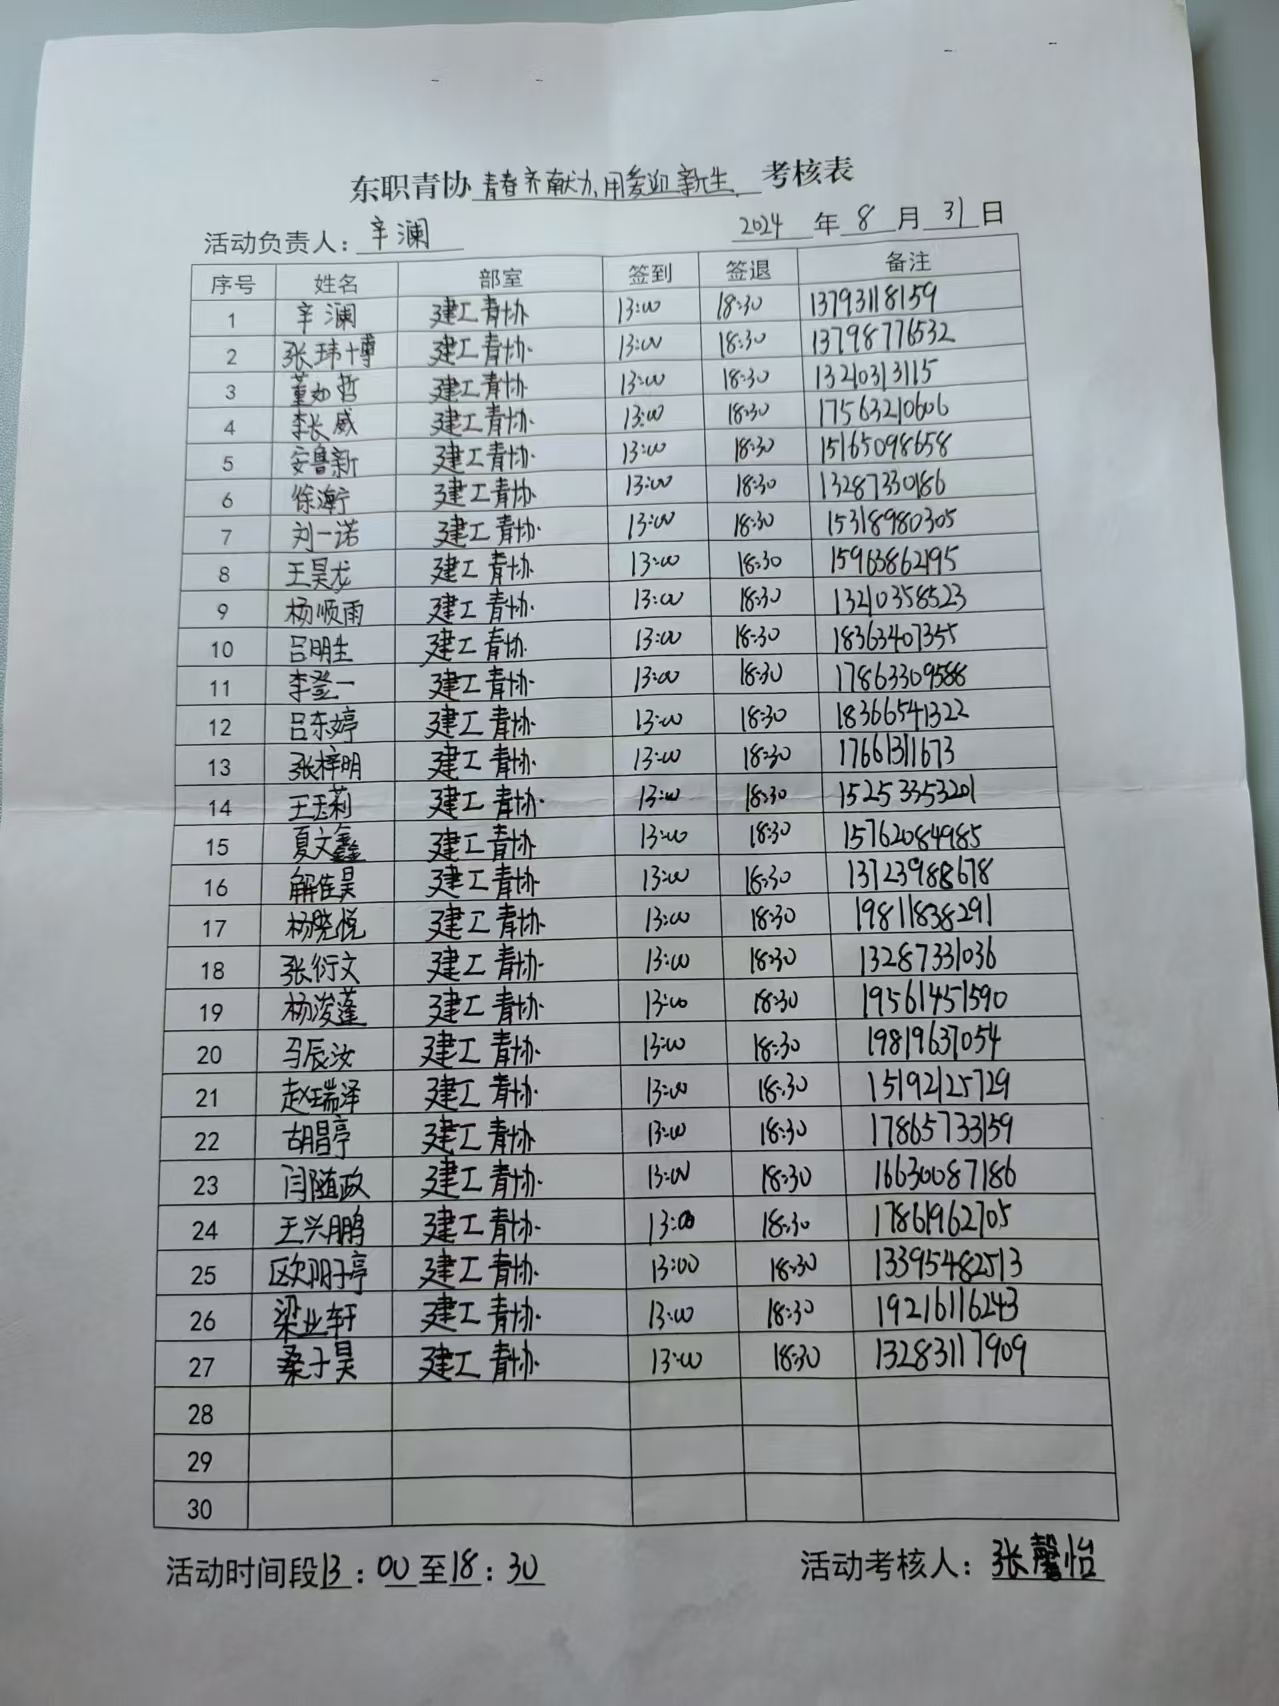 东职青协 青春齐献力,用爱迎新生. 考核表
活动负责人: 辛澜 2024 年 8 月 31 日
序号 姓名 部室 签到 签退 备注
1 辛澜 建工青协 13:00 18:30 13793118159
2 张玮博 建工青协 13:00 18:30 13798776532
3 董如哲 建工青协 13:00 18:30 13210313115
4 李长威 建工青协 13:00 18:30 17563210606
5 安鲁新 建工青协 13:00 18:30 15165098658
6 徐海宁 建工青协 13:00 18:30 13287330186
7 刘一诺 建工青协 13:00 18:30 15318980305
8 王昊龙 建工青协 13:00 18:30 15963862195
9 杨顺雨 建工青协 13:00 18:30 13210358523
10 吕明生 建工青协 13:00 18:30 18363407355
11 李登一 建工青协 13:00 18:30 17863309588
12 吕东婷 建工青协 13:00 18:30 18366541322
13 张梓明 建工青协 13:00 18:30 17661311673
14 王玉莉 建工青协 13:00 18:30 15253353201
15 夏文鑫 建工青协 13:00 18:30 15762084985
16 解佳昊 建工青协 13:00 18:30 13723988678
17 杨晓悦 建工青协 13:00 18:30 19811838291
18 张衍文 建工青协 13:00 18:30 13287331036
19 杨浚蓬 建工青协 13:00 18:30 19561451590
20 马辰汝 建工青协 13:00 18:30 19819631054
21 赵瑞泽 建工青协 13:00 18:30 15192125729
22 胡昌亭 建工青协 13:00 18:30 17865733159
23 闫随政 建工青协 13:00 18:30 16630087186
24 王兴鹏 建工青协 13:00 18:30 17861962705
25 欧阳子亭 建工青协 13:00 18:30 13395482513
26 梁业轩 建工青协 13:00 18:30 19216116243
27 桑子昊 建工青协 13:00 18:30 13283117909
28
29
30
活动时间段13:00至18:30 活动考核人: 张馨怡